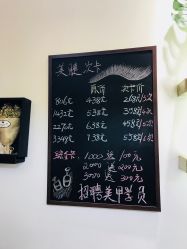 美睫 次卡
原价 次卡价
806元 438元 268元/3次
1432元 538元 358元/5次
2270元 638元 458元/5次
3349元 738元 558元/5次
充值卡: 1000 送 100元
2000 送 200元
3000 送 300元
招聘美甲学员